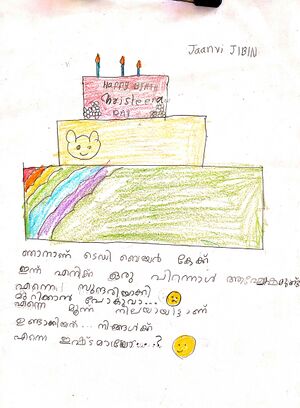 Jaanvi JIBIN
HAPPY BIRTH
Chrisleena
DAY
ഞാനാണ് ടെഡി ബെയർ കേക്ക്
ഇന്ന് എനിക്ക് ഒരു പിറന്നാൾ ആഘോഷമുണ്ട്
എന്നെ സുന്ദരിയാണ്
മുറിക്കാൻ പോകുവാ...
എന്നെ മൂന്ന് നിലയായിട്ടാണ്
ഉണ്ടാക്കിയത്... നിങ്ങൾക്ക്
എന്നെ ഇഷ്ടമായോ...?